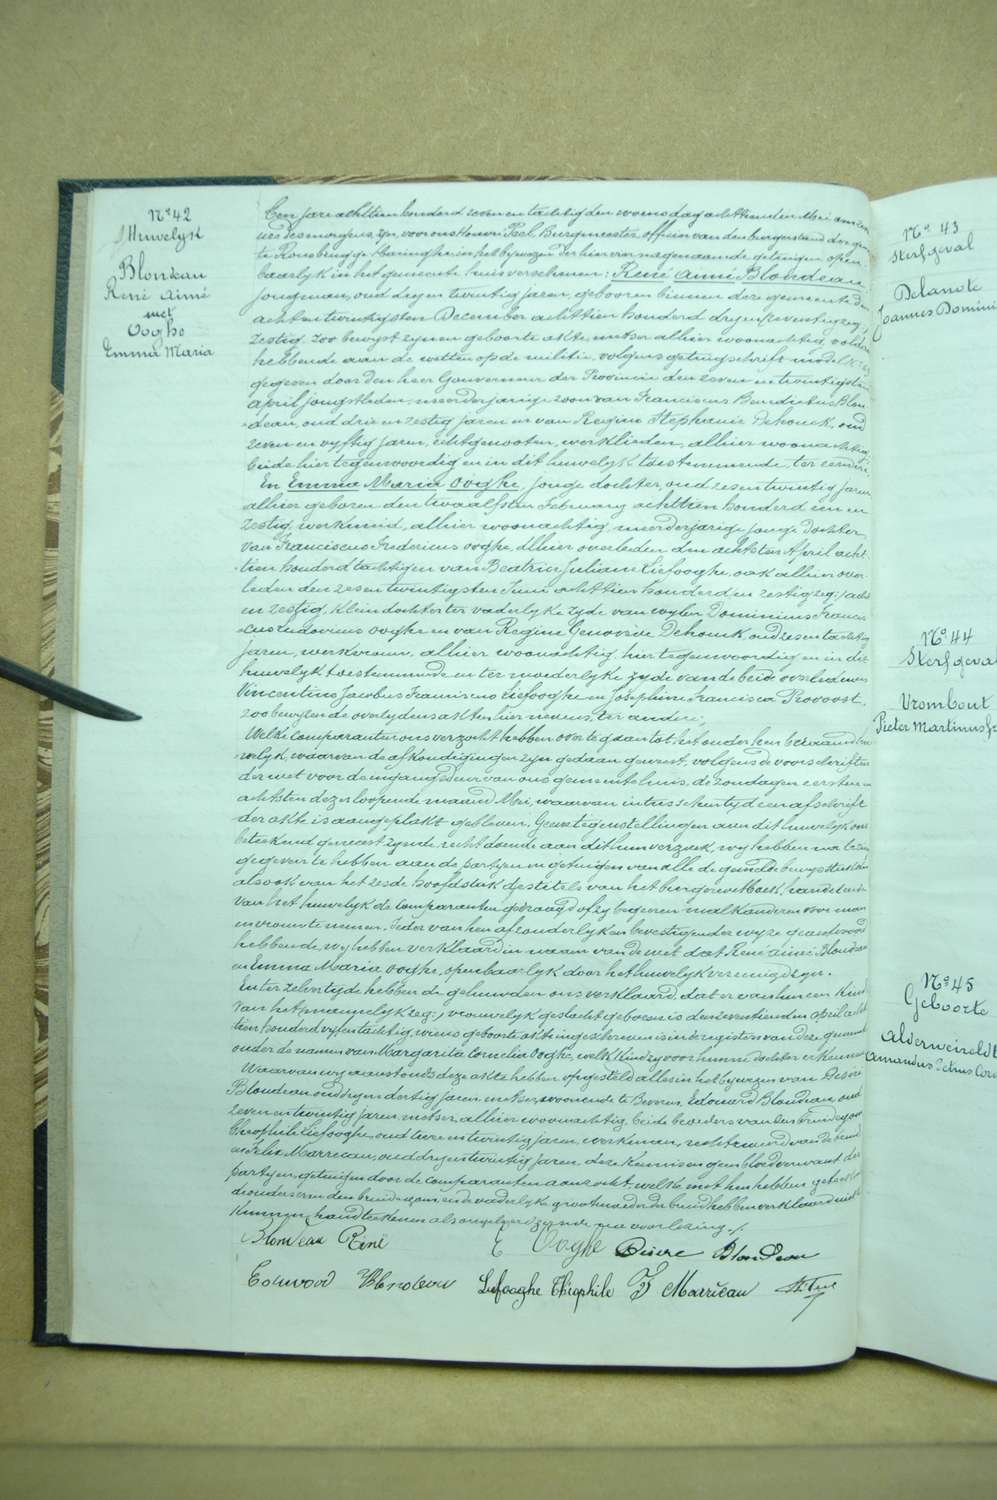 Nº 42
Huwelyk
Blondeau
René Aimé
met
Ooghe
Emma Maria
Een jare achttien honderd zeven en tachtig den woensdag achttienden Mei om
ure des morgens zyn, voor ons Henri Peel, Burgmeester, officier van den burgerstand der gemeen-
te Rousbrugge Haringhe, in het bywezen der hiervornagenaamde getuigen open-
baarlyk in het gemeente huis verschenen: René Aimé Blondeau,
jongman, oud dry en twintig jaren, geboren binnen deze gemeente den
acht en twintigsten December achttien honderd dry en zeventig zeg;
zestig, zoo bewyst zynen geboorte akte, metser alhier woonachtig, voldaan
hebbende aan de wetten op de militie, volgens getuigschrift model
gegeven door den heer Gouverneur der Provincie den zeven en twintigsten
april jongstleden, meerderjarige zoon van Franciscus Benedictus Blon-
deau, oud drie en zestig jaren en van Regina Stephanie Dehouck, oud
zeven en vyftig jaren, echtgenooten, werklieden, alhier woonachtig,
beide hier tegenwoordig en in dit huwelyk toestemmende, ter eenre;
En Emma Maria Ooghe, jonge dochter, oud zes en twintig jaren,
alhier geboren den twaalfsten February achttien honderd een en
zestig, werkmeid, alhier woonachtig, meerderjarige jonge dochter
van Franciscus Fredericus Ooghe, alhier overleden den achtsten April acht-
tien honderd tachtig en van Beatrix Juliana Liefooghe, ook alhier over-
leden den zes en twintigsten Juni achttien honderd en zestig zeg; acht
en zestig, klein dochter ter vaderlyke zyde van wylen Dominicus Francis-
cus Ludovicus Ooghe en van Regina Genoveve Dehouck, oud zes en tachtig
jaren, werkvrouw, alhier woonachtig, hier tegenwoordig en in dit
huwelyk toestemmende en ter moederlyke zyde van de beide overledenen
Vincentius Jacobus Franciscus Liefooghe en Josephine Francisca Provoost,
zoo bewyzen de overlydens akten hier nevens, ter andere;
Welke comparanten ons verzocht hebben over te gaan tot het onder hen beraamd hu-
welyk, waarvan de afkondigingen zyn gedaan geweest, volgens de voorschriften
der wet voor de ingangsdeur van ons gemeentehuis, de zondagen eersten en
achtsten dezer loopende maand Mei, waarvan intusschentyd een afschrift
der akte is aangeplakt gebleven. Geene tegenstellingen aan dit huwelyk ons
beteekend geweest zynde, recht doende aan dit hun verzoek, wy hebben na lezing
gegeven te hebben aan de partyen en getuigen van alle de gemelde bewysstukken
alsook van het zesde hoofdstuk des titels van het burgerwetboek, handelende
van het huwelyk de comparanten gevraagd of zy begeeren malkanderen voor man
en vrouw te nemen. Ieder van hen afzonderlyk en bevestigender wyze geantwoord
hebbende, wy hebben verklaard in naam van de wet dat René Aimé Blondeau
en Emma Maria Ooghe, openbaarlyk door het huwelyk vereenigd zyn.
En ter zelver tyde hebben de gehuwden ons verklaard, dat er van hun een kind
van het mannelyk zeg;, vrouwelyk geslacht geboren is den zeventienden april acht-
tien honderd vyf en tachtig, wiens geboorte akte ingeschreven is in de registers van deze gemeente
onder de namen van Margarita Cornelia Ooghe, welk kind zy voor hunne dochter erkennen.
Waarvan wy aanstonds deze akte hebben opgesteld alles in het bywezen van Désiré
Blondeau oud dry en dertig jaren, metser, woonende te Beveren, Edouard Blondeau, oud
zeven en twintig jaren, metser, alhier woonachtig, beide broeders van den bruidegom,
Theophile Liefooghe, oud twee en twintig jaren, werkman, rechtzweer van de bruid
en Felix Marreeau, oud dry en twintig jaren, deze kennis en geen bloedverwant der
partyen, getuigen door de comparanten aanzocht, welke met hen hebben geteekend
de ouders van den bruidegom, en de vaderlyke grootmoeder der bruid hebben verklaard niet te
kunnen handteekenen als ongeleerd zynde na voorlezing.
Blondeau René
E Ooghe Désiré Blondeau
Edouard Blondeau Liefooghe Théophile F Marrieau H. Peel
Nº 43
Sterfgeval
Delanote
Joannes Domini
Nº 44
Sterfgeval
Vrombout
Pieter Martinus
Nº 45
Geboorte
Alderweireldt
Amandus Petrus Cor